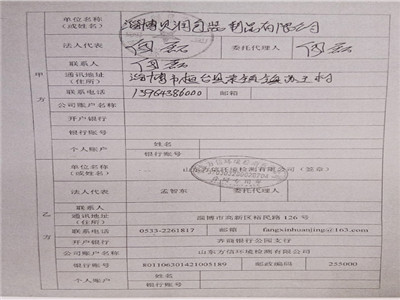 甲方
单位名称（或姓名） 淄博贝润园艺制品有限公司
法人代表 闫磊 委托代理人 闫磊
联系人 闫磊
通讯地址（住所） 淄博市桓台县
联系电话 13964386000 邮箱
公司账户名称
开户银行
银行账号
个人账户 姓名
银行账号
乙方
单位名称（或姓名） 山东方信环境检测有限公司（签章）
法人代表 孟智东 委托代理人
联系人
通讯地址（住所） 淄博市高新区裕民路 126 号
联系电话 0533-2261817 邮箱 fangxinhuanjing@163.com
开户银行 齐商银行公园支行
公司账户名称 山东方信环境检测有限公司
银行账号 801106301421005189 邮政编码 255000
个人账户 姓名
银行账号